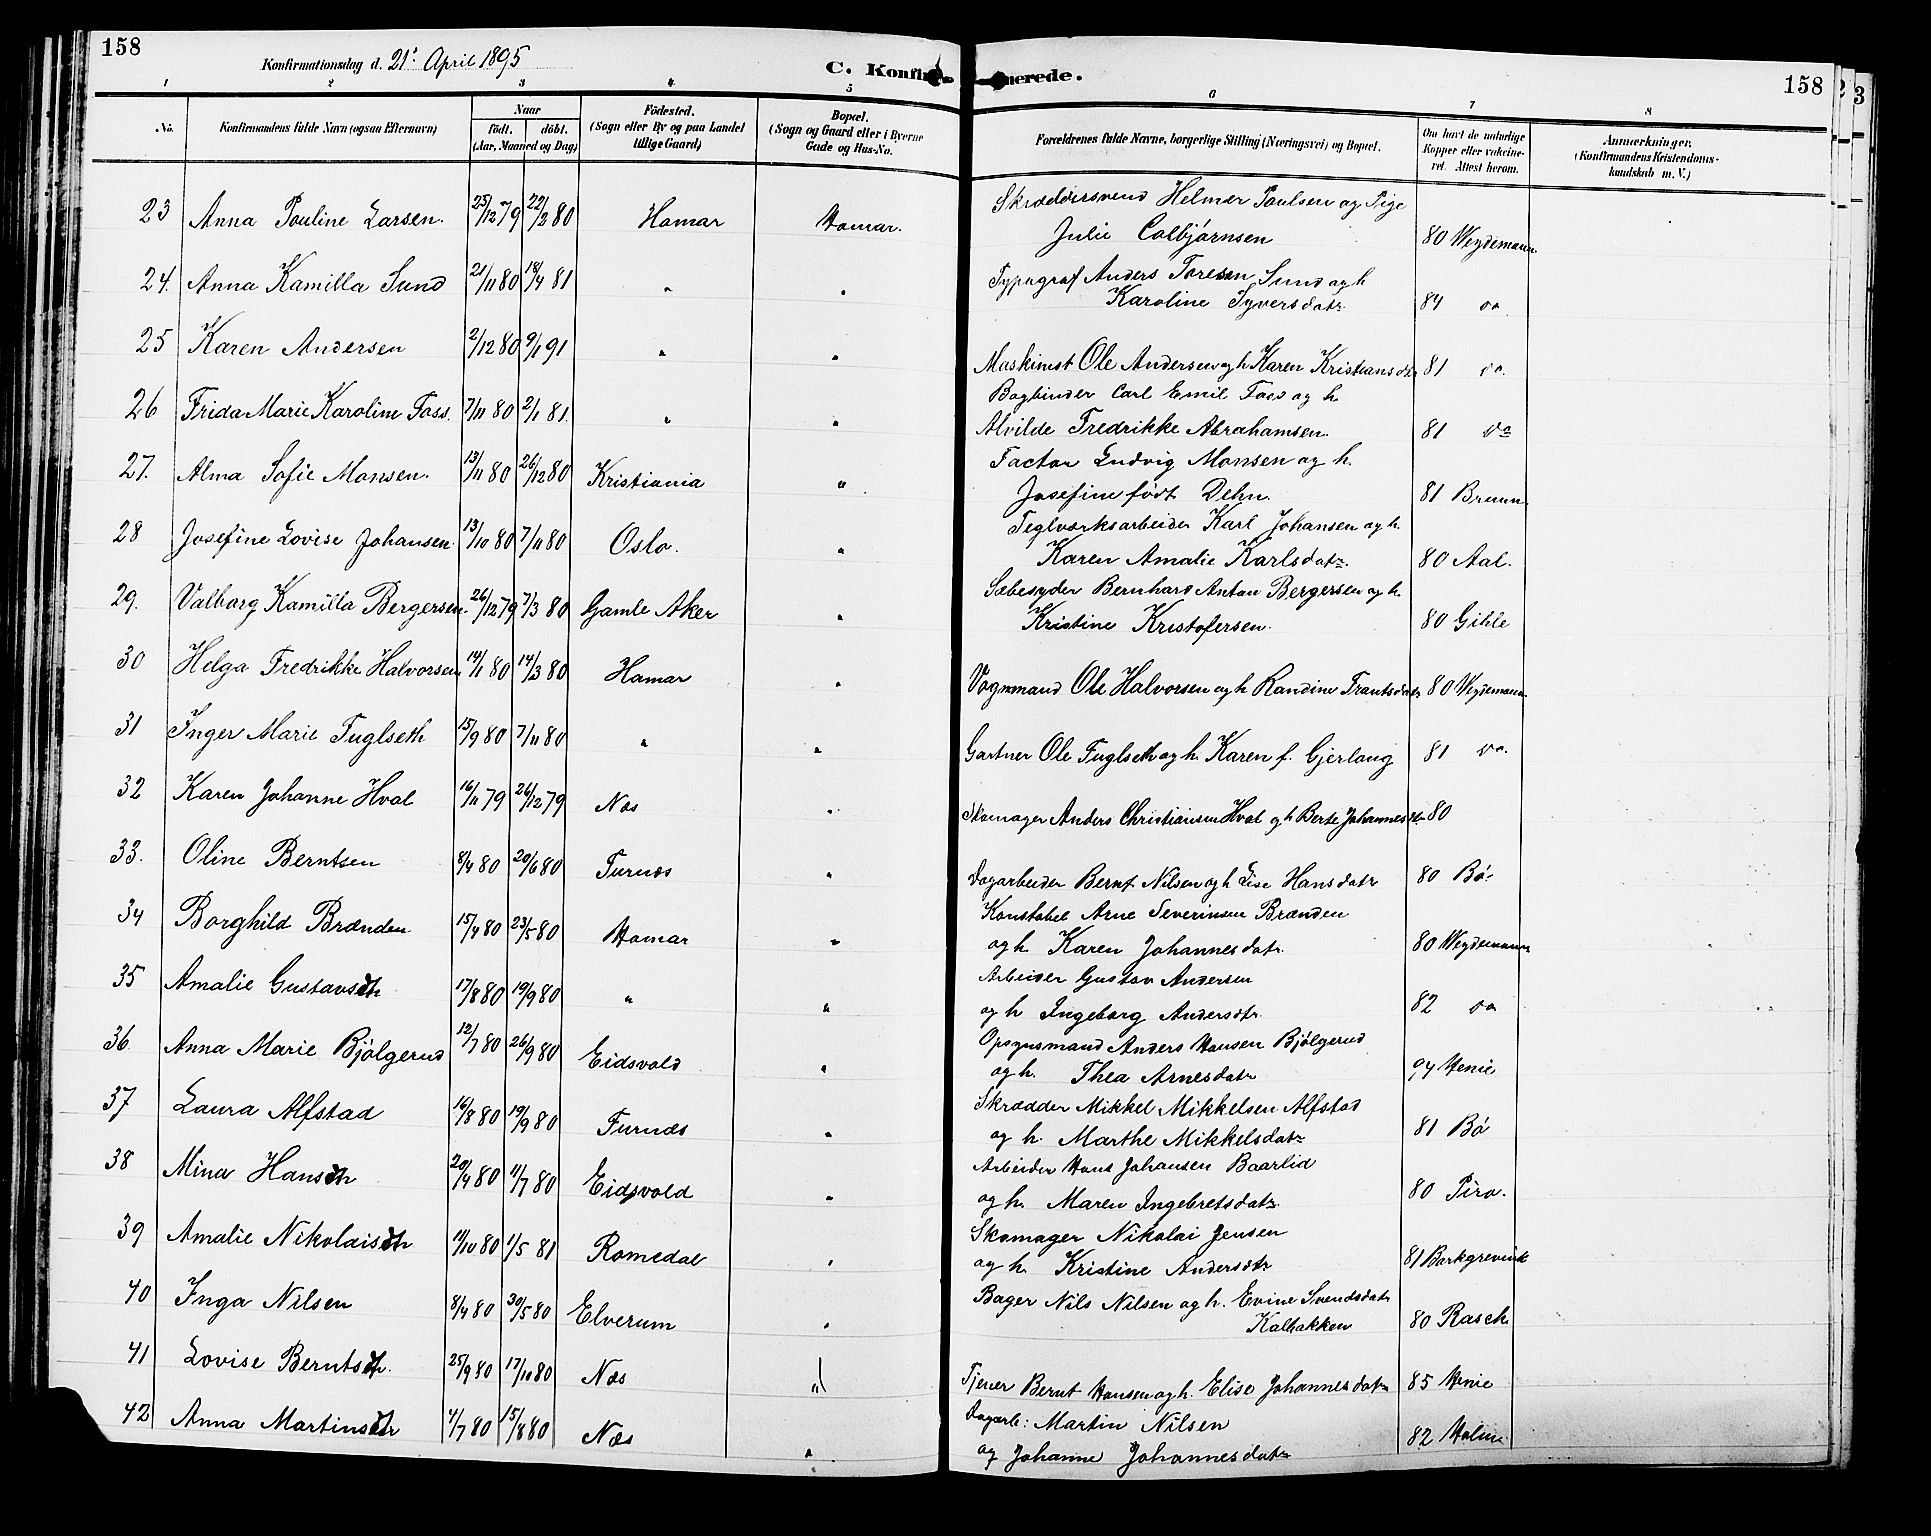 158
Konfirmationsdag d. 21' April 1895
C. Konfirmerede.
158
1 2 3 4 5 6 7 8
No.
Konfirmandens fulde Navn (ogsaa Efternavn)
Naar
født. døbt.
(Aar, Maaned og Dag)
Födested.
(Sogn eller By og paa Landet
tillige Gaard)
Bopæl.
(Sogn og Gaard eller i Byerne
Gade og Hus-No.
Forældrenes fulde Navne, borgerlige Stilling (Næringsvei) og Bopæl.
Om havt de naturlige
Kopper eller vakcine-
ret. Attest herom.
Anmærkninger.
(Konfirmandens Kristendoms-
kundskab m. V.)
23 Anna Pouline Larsen. 25/12 79 22/2 80 Hamar Hamar. Skræddersvend Helmer Poulsen og Pige
Julie Colbjørnsen 80 Weydemann
24. Anna Kamilla Sund 21/11 80 18/4 81 " " Typograf Anders Toresen Sund og h
Karoline Syversdatr 84 do
25 Karen Andersen 2/12 80 9/1 91 " " Maskinist Ole Andersen og h Karen Kristiansdtr 81 do.
26 Frida Marie Karoline Foss. 7/11 80 2/1 81. " " Bogbinder Carl Emil Foss og h.
Alvilde Fredrikke Abrahamsen. 81 do
27. Alma Sofie Monsen. 13/11 80 26/12 80 Kristiania " Factor Ludvig Monsen og h.
Josefine født Dehn. 81 Bruun
28 Josefine Lovise Johansen. 13/10 80 7/11 80 Oslo. " Teglværksarbeider Karl Johansen og h.
Karen Amalie Karlsdatr. 80 Aal.
29. Valborg Kamilla Bergersen. 26/12 79 7/3 80 Gamle Aker " Sæbesyder Bernhard Anton Bergersen og h.
Kristine Kristofersen. 80 Gihle
30 Helga Fredrikke Halvorsen 14/1 80 14/3 80 Hamar " Vognmand Ole Halvorsen og h Randine Frantsdatr 80 Weydemann
31 Inger Marie Fuglseth 15/9 80 7/11 80 " " Gartner Ole Fuglseth og h. Karen f. Gjerlaug 81 do.
32 Karen Johanne Hval 16/11 79 26/12 79 Næs " Skomager Anders Christiansen Hval og h Berte Johannesdtr 80
33. Oline Berntsen 8/4 80 20/6 80 Furnæs " Dagarbeider Bernt Nilsen og h Lise Hansdatr 80 Bø
34 Borghild Brænden 15/4 80 23/5 80 Hamar " Konstabel Arne Severinsen Brænden
og h. Karen Johannesdatr. 80 Weydemann
35 Amalie Gustavsdtr 17/8 80 19/9 80 " " Arbeider Gustav Andersen
og h Ingeborg Andersdtr. 82 do
36. Anna Marie Bjølgerud 12/7 80 26/9 80 Eidsvold " Opsynsmand Anders Hansen Bjølgerud
og h. Thea Arnesdatr 94 Henie
37 Laura Alfstad 16/8 80 19/9 80 Furnæs " Skrædder Mikkel Mikkelsen Alfstad
og h. Marthe Mikkelsdatr 81 Bø
38 Mina Hansdtr 20/4 80 11/7 80 Eidsvold " Arbeider Hans Johansen Baarlid
og h. Maren Ingebretsdatr. 80 Piro.
39 Amalie Nikolaisdtr 11/10 80 1/5 81 Romedal " Skomager Nikolai Jensen
og h. Kristine Andersdtr 81 Borkgrevink
40 Inga Nilsen 8/4 80 30/5 80 Elverum " Bager Nils Nilsen og h. Evine Svendsdatr
Kalbakken 80 Rasch
41 Lovise Berntsdtr. 25/9 80 17/10 80 Næs " Tjener Bernt Hansen og h. Elise Johannesdatr 85 Henie
42 Anna Martinsdtr 4/7 80 15/8 80 Næs " Dagarb: Martin Nilsen
og Johanne Johannesdatr 82